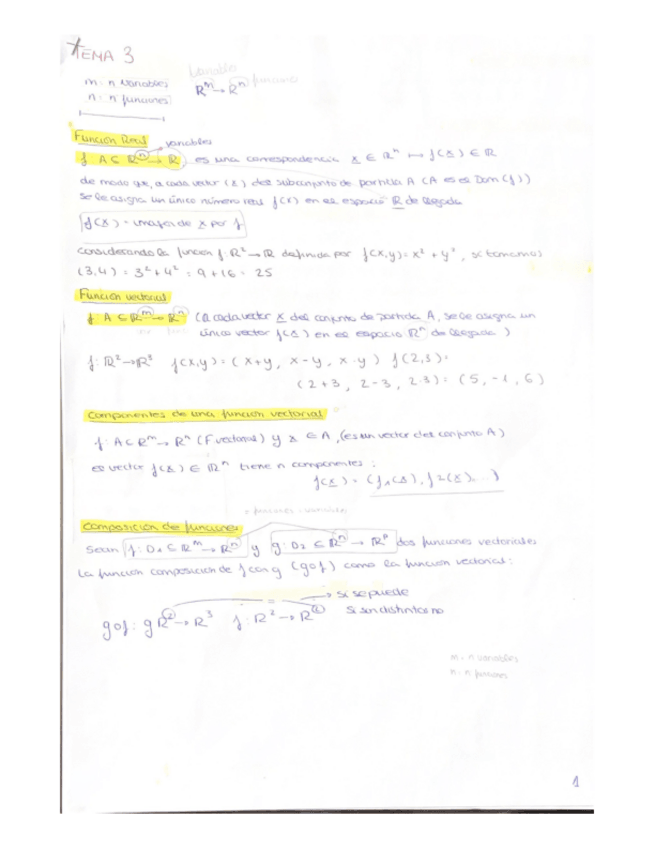 TEMA 3
m: n variables
n: n funciones
variables
R^m → R^n funciones
Función Real
→ variables
f: A ⊆ R^n → R es una correspondencia x ∈ R^n ↦ f(x) ∈ R
de modo que, a cada vector (x) del subconjunto de partida A (A es el Dom(f))
se le asigna un único número real f(x) en el espacio R de llegada
f(x) - imagen de x por f
Considerando la función f: R² → R definida por f(x,y) = x² + y², si tomamos
(3,4) = 3² + 4² = 9 + 16 = 25
Función vectorial
f: A ⊆ R^m → R^n (a cada vector x del conjunto de partida A, se le asigna un
único vector f(x) en el espacio R^n de llegada)
f: R² → R³ f(x,y) = (x+y, x-y, x·y) f(2,3) =
(2+3, 2-3, 2·3) = (5, -1, 6)
Componentes de una función vectorial
f: A ⊂ R^m → R^n (F vectorial) y x ∈ A, (es un vector del conjunto A)
el vector f(x) ∈ R^n tiene n componentes:
f(x) = (f1(x), f2(x), ...)
= funciones - variables
Composición de funciones
Sean f: D1 ⊆ R^m → R^n y g: D2 ⊆ R^n → R^p dos funciones vectoriales
La función composición de f con g (g∘f) como la función vectorial:
= → si se puede
g∘f: g R² → R³ f: R² → R² Si son distintos no
m: n variables
n: n funciones
1